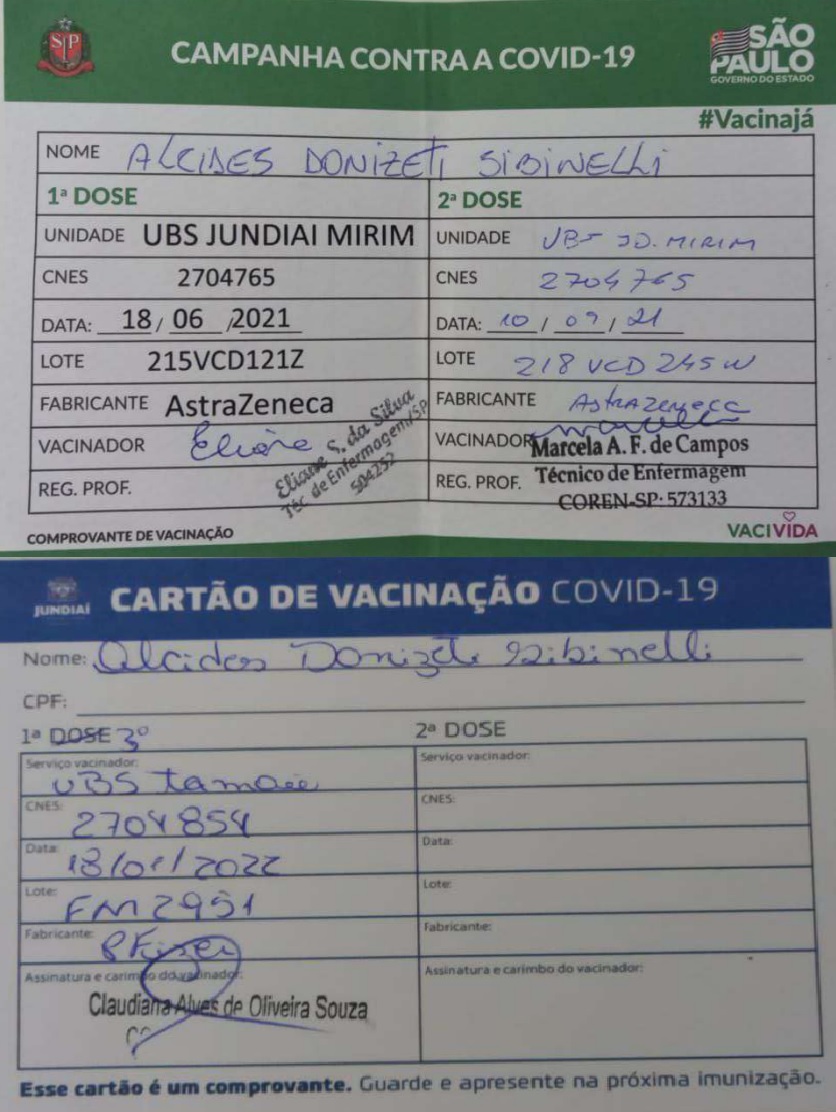 SP
CAMPANHA CONTRA A COVID-19
SÃO PAULO
GOVERNO DO ESTADO
#Vacinajá
NOME ALCIDES DONIZETI SIBINELLI
1ª DOSE
UNIDADE UBS JUNDIAI MIRIM
CNES 2704765
DATA: 18/06/2021
LOTE 215VCD121Z
FABRICANTE AstraZeneca
VACINADOR Eliane
Eliane S. da Silva
Téc. de Enfermagem/SP
504252
REG. PROF.
2ª DOSE
UNIDADE UBS JD. MIRIM
CNES 2704765
DATA: 10/09/21
LOTE 218 VCD 245 W
FABRICANTE AstraZeneca
VACINADOR Marcela A. F. de Campos
REG. PROF. Técnico de Enfermagem
COREN-SP: 573133
COMPROVANTE DE VACINAÇÃO
VACIVIDA
JUNDIAÍ
CARTÃO DE VACINAÇÃO COVID-19
Nome: Alcides Donizeti Sibinelli
CPF:
1ª DOSE 3º
Serviço vacinador:
UBS Tamoio
CNES:
2704854
Data:
18/01/2022
Lote:
FM2951
Fabricante:
Pfizer
Assinatura e carimbo do vacinador:
Claudiana Alves de Oliveira Souza
2ª DOSE
Serviço vacinador:
CNES:
Data:
Lote:
Fabricante:
Assinatura e carimbo do vacinador:
Esse cartão é um comprovante. Guarde e apresente na próxima imunização.